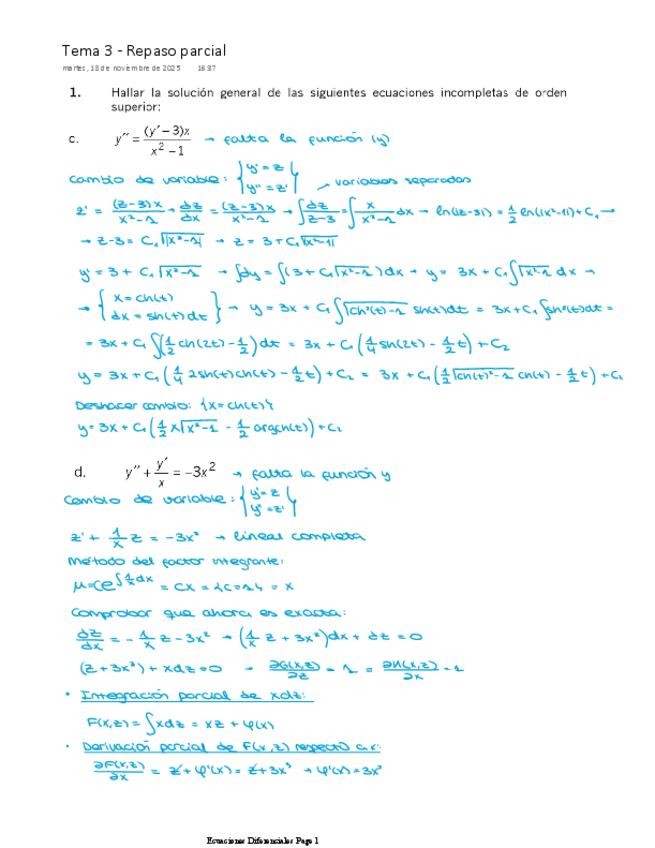 Tema 3 - Repaso parcial
martes, 18 de noviembre de 2025 16:37
1. Hallar la solución general de las siguientes ecuaciones incompletas de orden
superior:
c. y'' = (y' – 3)x / (x² – 1) → falta la función (y)
Cambio de variable: { y' = z
y'' = z' }
→ variables separadas
z' = (z-3)x / (x²-1) → dz/dx = (z-3)x / (x²-1) → ∫ dz/(z-3) = ∫ x/(x²-1) dx → ln(|z-3|) = 1/2 ln(|x²-1|) + C₁ →
→ z-3 = C₁ √|x²-1| → z = 3 + C₁ √|x²-1|
y' = 3 + C₁ √(x²-1) → ∫dy = ∫(3 + C₁ √(x²-1)) dx → y = 3x + C₁ ∫√(x²-1) dx →
→ { x = ch(t)
dx = sh(t) dt } → y = 3x + C₁ ∫√(ch²(t)-1) sh(t) dt = 3x + C₁ ∫sh²(t) dt =
= 3x + C₁ ∫(1/2 ch(2t) - 1/2) dt = 3x + C₁ (1/4 sh(2t) - 1/2 t) + C₂
y = 3x + C₁ (1/4 2sh(t)ch(t) - 1/2 t) + C₂ = 3x + C₁ (1/2 √(ch(t)²-1) ch(t) - 1/2 t) + C₂
Deshacer cambio: {x = ch(t)}
y = 3x + C₁ (1/2 x√(x²-1) - 1/2 argch(t)) + C₂
d. y'' + y'/x = –3x² → falta la función y
Cambio de variable: { y' = z
y'' = z' }
z' + 1/x z = -3x² → lineal completa
Método del factor integrante:
μ = C e^∫(1/x)dx = Cx = {C=1} = x
Comprobar que ahora es exacta:
dz/dx = - 1/x z - 3x² → (1/x z + 3x²) dx + dz = 0
(z + 3x³) + x dz = 0 → ∂G(x,z)/∂z = 1 = ∂H(x,z)/∂x = 1
• Integración parcial de xdz:
F(x,z) = ∫xdz = xz + φ(x)
• Derivación parcial de F(x,z) respecto a x:
∂F(x,z)/∂x = z + φ'(x) = z + 3x³ → φ'(x) = 3x³
Ecuaciones Diferenciales Page 1